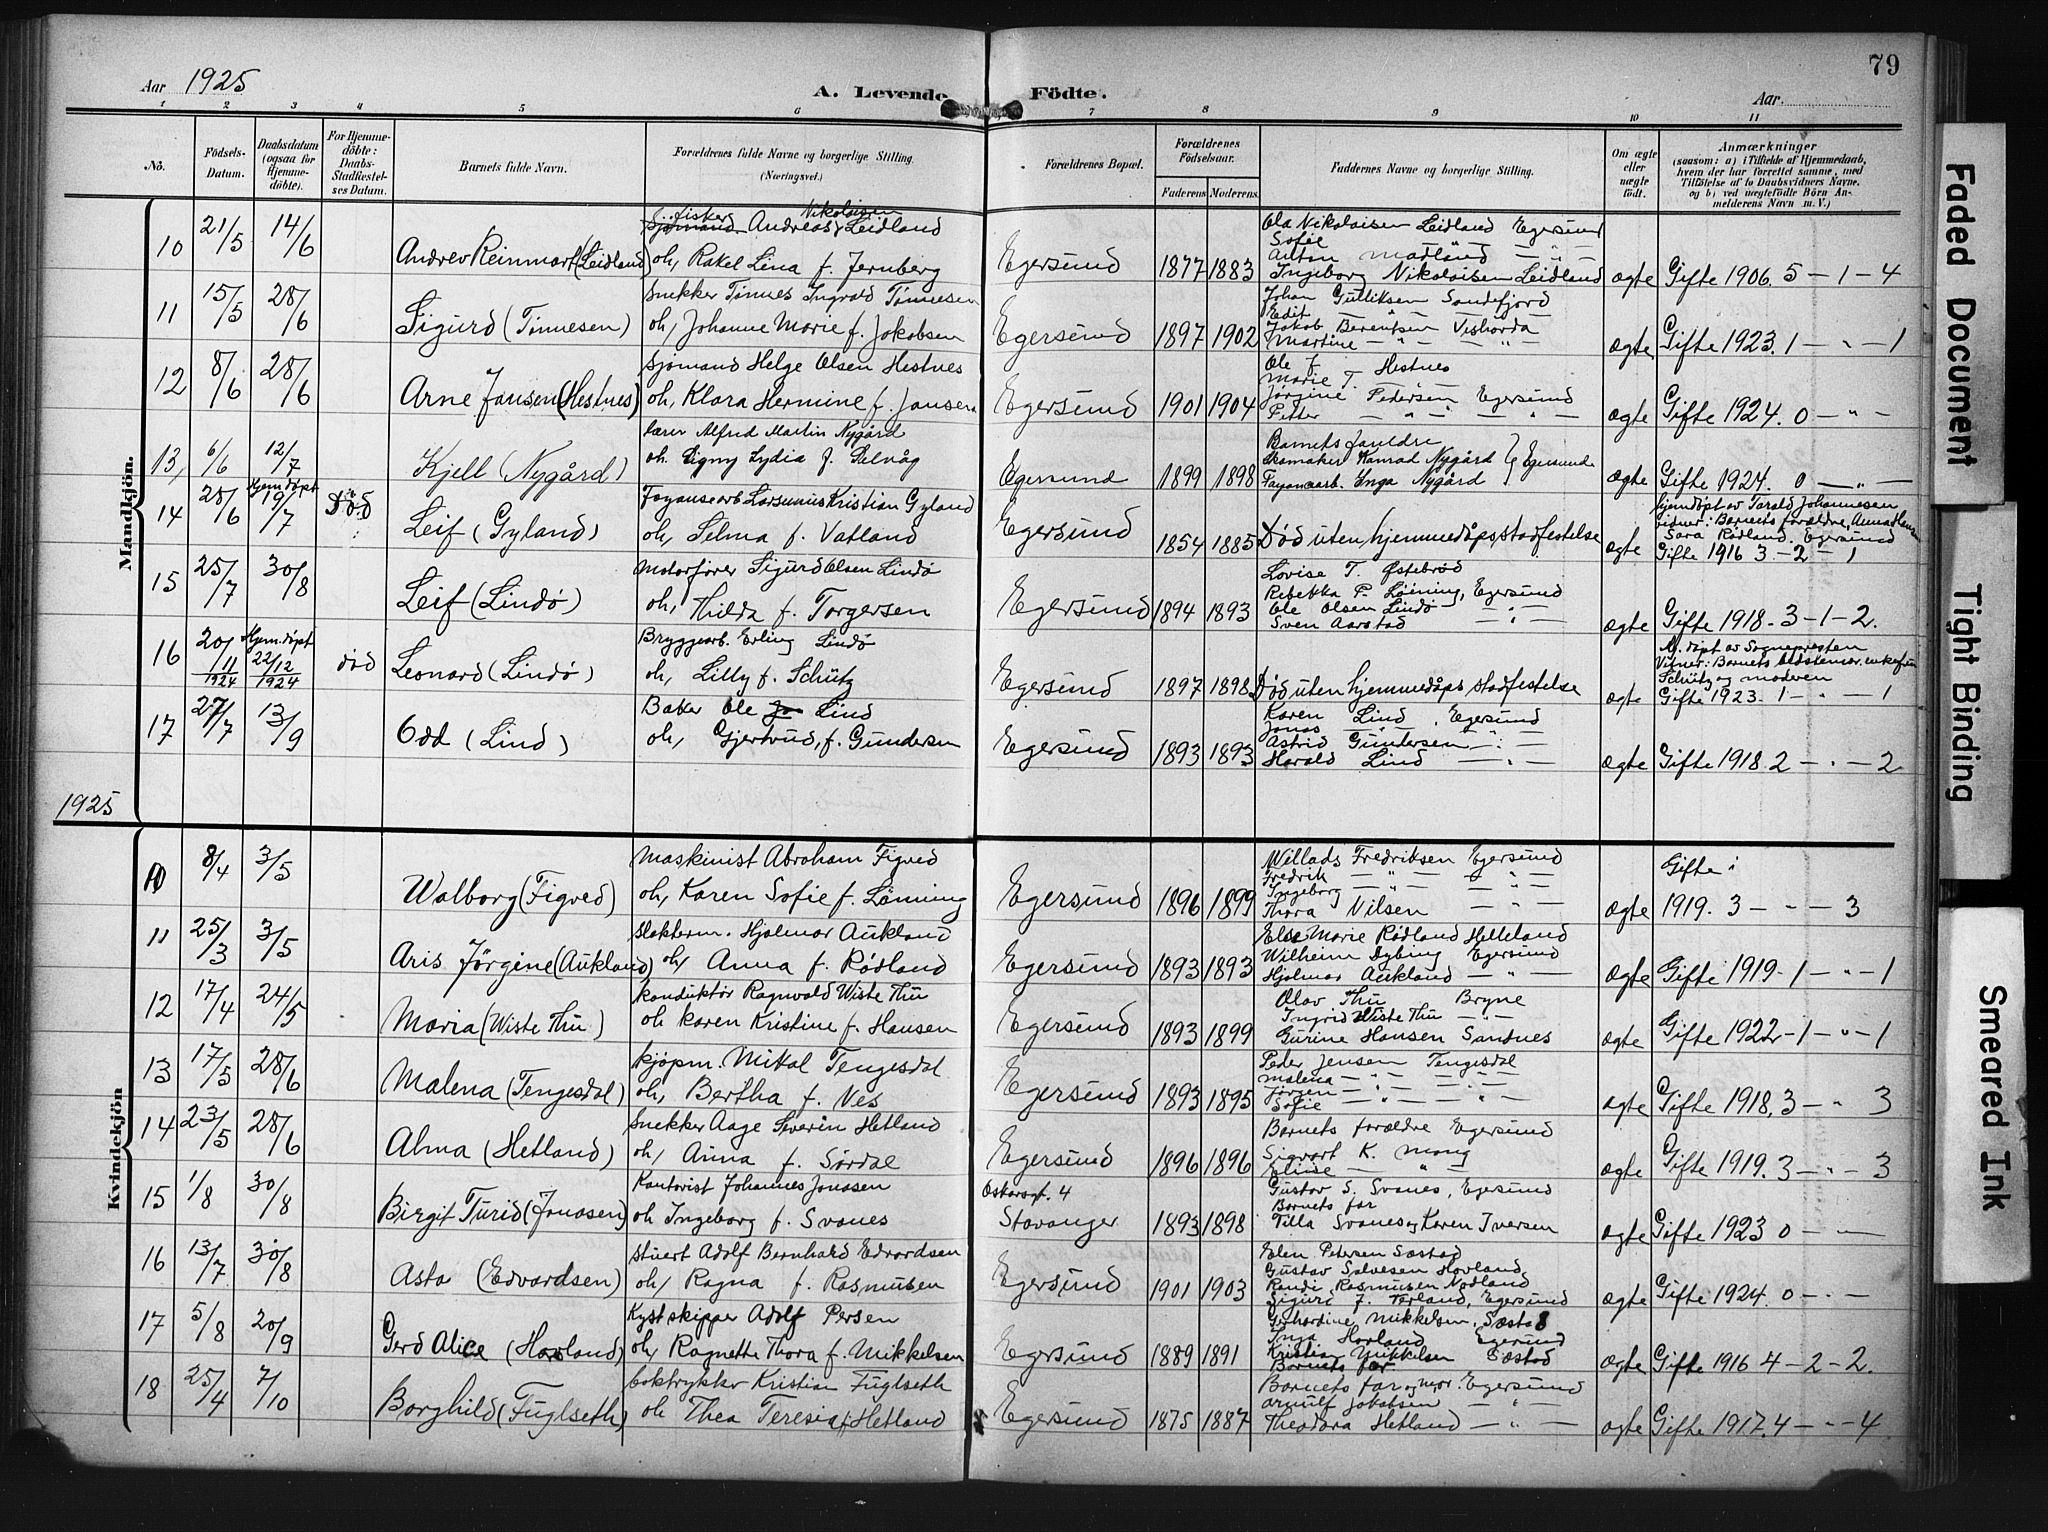 79
Aar 1925
A. Levende Födte.
Aar.
1 2 3 4 5 6 7 8 9 10 11
No.
Födsels-Datum.
Daabsdatum (ogsaa for Hjemmedöbte).
For Hjemmedöbte: Daabs-Stadfæstelses Datum.
Barnets fulde Navn.
Forældrenes fulde Navne og borgerlige Stilling. (Næringsvei.)
Forældrenes Bopæl.
Forældrenes Födselsaar.
Faderens. Moderens.
Faddernes Navne og borgerlige Stilling.
Om ægte eller uægte födt.
Anmærkninger
(saasom: a) i Tilfælde af Hjemmedaab, hvem der har forrettet samme, med Tilföielse af to Daabsvidners Navne, og b) ved uægtefödte Börn Anmelderens Navn m. V.)
Mandkjön.
10 21/5 14/6 Andrev Reinmart (Leidland) fisker Andreas Nikolaisen Leidland
oh, Rakel Lina f. Jernberg
Egersund 1877 1883
Ola Nikolaisen Leidland Egersund
Sofie
Anton Madland — " —
Ingeborg Nikolaisen Leidland
ægte Gifte 1906. 5 - 1 - 4
11 15/5 28/6 Sigurd (Tönnesen) Snekker Tönnes Ingvald Tönnesen
oh, Johanne Marie f. Jakobsen
Egersund 1897 1902
Johan Gulliksen Sandefjord
Edit — " —
Jakob Berentsen Vishovda
Martine — " — — " —
ægte Gifte 1923. 1 - " - 1
12 8/6 28/6 Arne Jansen (Hestnes) Sjömand Helge Olsen Hestnes
oh, Klara Hermine f. Jansen
Egersund 1901 1904
Ole J. Hestnes
Marie T.
Jørgine Pedersen Egersund
Petter — " — — " —
ægte Gifte 1924. 0 - " -
13, 6/6 12/7 Kjell (Nygård) Lærer Alfred Martin Nygård
oh. Signy Lydia f. Selvåg
Egersund 1899 1898
Barnets foreldre
Skomaker Konrad Nygård } Egersund
Fayansearb. Inga Nygård
ægte Gifte 1924. 0 — " —
14 28/6 Hjemdöpt 19/7 Död Leif (Gyland) Fayansearb Larsenius Kristian Gyland
oh, Selma f. Vatland
Egersund 1854 1885 Död uten hjemmedåps, stadfestelse
ægte hjemdöpt av Tarald Johannesen
vidner: Barnets forældre,
Sara Rödland, Egersund
Gifte 1916 3 - 2 - 1
15 25/7 30/8 Leif (Lindö) Motorförer Sigurd Olsen Lindö
oh, Thilda f. Torgersen
Egersund 1894 1893
Lovise T. Østebröd
Rebekka P. Lönning, Egersund
Ole Olsen Lindö — " —
Sven Aarstad — " —
ægte Gifte 1918. 3 - 1 - 2.
16 20/11 1924 Hjem.döpt 22/12 1924 död Leonard (Lindö) Bryggearb. Erling Lindö
oh, Lilly f. Schütz
Egersund 1897 1898 Död uten hjemmedåps stadfestelse
ægte Hj. döpt av Sognepresten
Vitner: Barnets bedstemor, enkefru
Schütz og moderen
Gifte 1923. 1 - " - 1
17 27/7 13/9 Odd (Lind) Baker Ole Lind
oh, Gjertrud, f. Gundersen
Egersund 1893 1893
Karen Lind, Egersund
Jonas — " — — " —
Astrid Gundersen — " —
Harald Lind — " —
ægte Gifte 1918. 2 - " - 2.
1925
Kvindekjön
10 8/4 3/5 Walborg (Figved) Maskinist Abraham Figved
oh, Karen Sofie f. Lönning
Egersund 1896 1899
Willads Fredriksen Egersund
Fredrik — " — — " —
Ingeborg — " — — " —
Thora Nilsen — " —
ægte Gifte
1919. 3 - " - 3
11 25/3 3/5 Aris Jörgine (Aukland) Slakterm. Hjalmar Aukland
oh, Anna f. Rödland
Egersund 1893 1893
Else Marie Rödland Helleland
Wilhelm Dybing Egersund
Hjalmar Aukland — " —
ægte Gifte 1919. 1 - " - 1
12 17/4 24/5 Maria (Wiste Thu) Konduktör Ragnvald Wiste Thu
oh Karen Kristine f. Hansen
Egersund 1893 1899
Olav Thu Bryne
Ingrid Wiste Thu — " —
Gurine Hansen Sandnes
ægte Gifte 1922. 1 - " - 1
13 17/5 28/6 Malena (Tengesdal) Kjöpm. Mikal Tengesdal
oh, Bertha f. Nes
Egersund 1893 1895
Peder Jensen Tengesdal
Malena — " — — " —
Jörgen — " — — " —
Sofie — " — — " —
ægte Gifte 1918. 3 - " 3
14 23/5 28/6 Alma (Hetland) Snekker Aage Severin Hetland
oh, Anna f. Sördal
Egersund 1896 1896
Barnets forældre Egersund
Sigvart K. Mong
Eline — " —
ægte Gifte 1919. 3 - " - 3
15 1/8 30/8 Birgit Turid (Jonasen) Kontorist Johannes Jonasen
oh Ingeborg f. Svanes
Oskarsgt. 4
Stavanger 1893 1898
Gustav S. Svanes, Egersund
Barnets far
Tilla Svanes og Karen Iversen
ægte Gifte 1923 0 - " —
16 13/7 30/8 Asta (Edvardsen) Stuert Adolf Bernhard Edvardsen
oh, Ragna f. Rasmussen
Egersund 1901 1903
Elen Petersen Sæstad
Gustav Salvesen Hovland
Randi Rasmussen Nodland
Sigurd J. Egersund
ægte Gifte 1924. 0 - " -
17 5/8 20/9 Gerd Alice (Hovland) Kystskipper Adolf Persen
oh, Ragnette Thora f. Mikkelsen
Egersund 1889 1891
Gerhardine Mikkelsen, Sæstad
Inga Hovland Egersund
Kristian Mikkelsen Sæstad
Barnets far
ægte Gifte 1916 4 - 2 - 2.
18 25/4 7/10 Borghild (Fuglseth) Boktrykker Kristian Fuglseth
oh Thea Teresia f Hetland
Egersund 1875 1887
Barnets far og mor. Egersund
Arnulf Jakobsen — " —
Theodora Hetland — " —
ægte Gifte 1917. 4 - " - 4.
Faded Document
Tight Binding
Smeared Ink